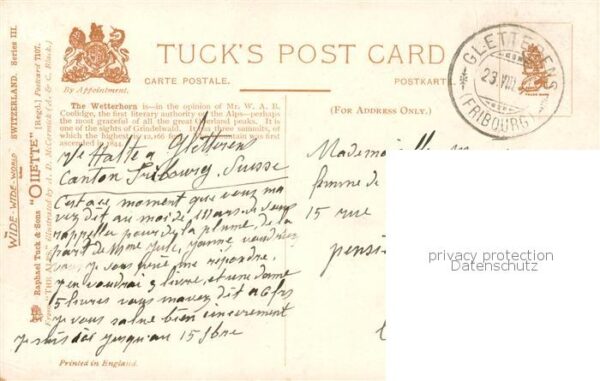 TUCK'S POST CARD
CARTE POSTALE.
POSTKARTE
By Appointment.
(FOR ADDRESS ONLY.)
GLETTERENS
23.VIII
(FRIBOURG)
The Wetterhorn is—in the opinion of Mr. W. A. B.
Coolidge, the first literary authority of the Alps—perhaps
the most graceful of all the great Oberland peaks. It is
one of the sights of Grindelwald. It has three summits, of
which the highest is 12,166 feet. The mountain was first
ascended in 1844.
Halte a Glétterens
Canton Fribourg, Suisse
C'est a ce moment que vous ma
vez dit au moi de Mars de vous
rappeller pour de la plume, de la
part de Mme
vous, je vous prie me répondre,
j'en voudrai 3 livre, et une dame
5 livres vous mavez dit a 6 frs
Je vous salue bien sincèrement
Je suis ici jusqu'au 15 7bre
Mademoiselle
femme de
15 rue
pensi
privacy protection
Datenschutz
Printed in England.
WIDE-WIDE-WORLD SWITZERLAND. Series III.
Raphael Tuck & Sons "OILETTE" [Regd.] Postcard 7107.
From "THE ALPS" illustrated by A. D. McCormick (A. & C. Black.)